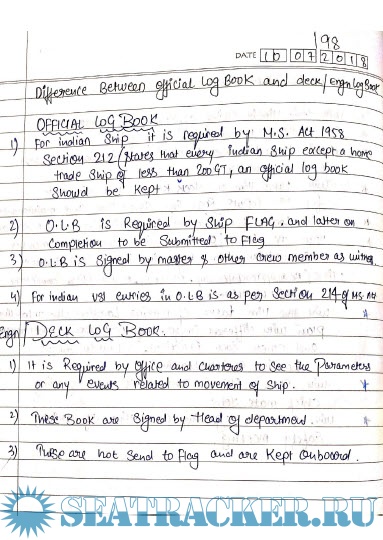 198
DATE 10 07 2018
Difference Between official Log Book and deck/Engn Log Book
OFFICIAL LOG BOOK
1) For indian ship it is required by M.S. Act 1958
Section 212 (states that every indian ship except a home
trade ship of less than 200 GT, an official log book
should be kept
2) O.L.B is Required by Ship FLAG. and latter on
Completion to be Submitted to Flag
3) O.L.B is signed by master & other crew member as witness
4) For Indian vsl entries in O.L.B is as per Section 214 of MS Act
Engn/ DECK LOG BOOK.
1) It is Required by Office and charteres to see the Parameters
or any events related to movement of ship.
2) These Book are signed by Head of department.
3) These are not send to Flag and are kept Onboard.
SEATRACKER.RU